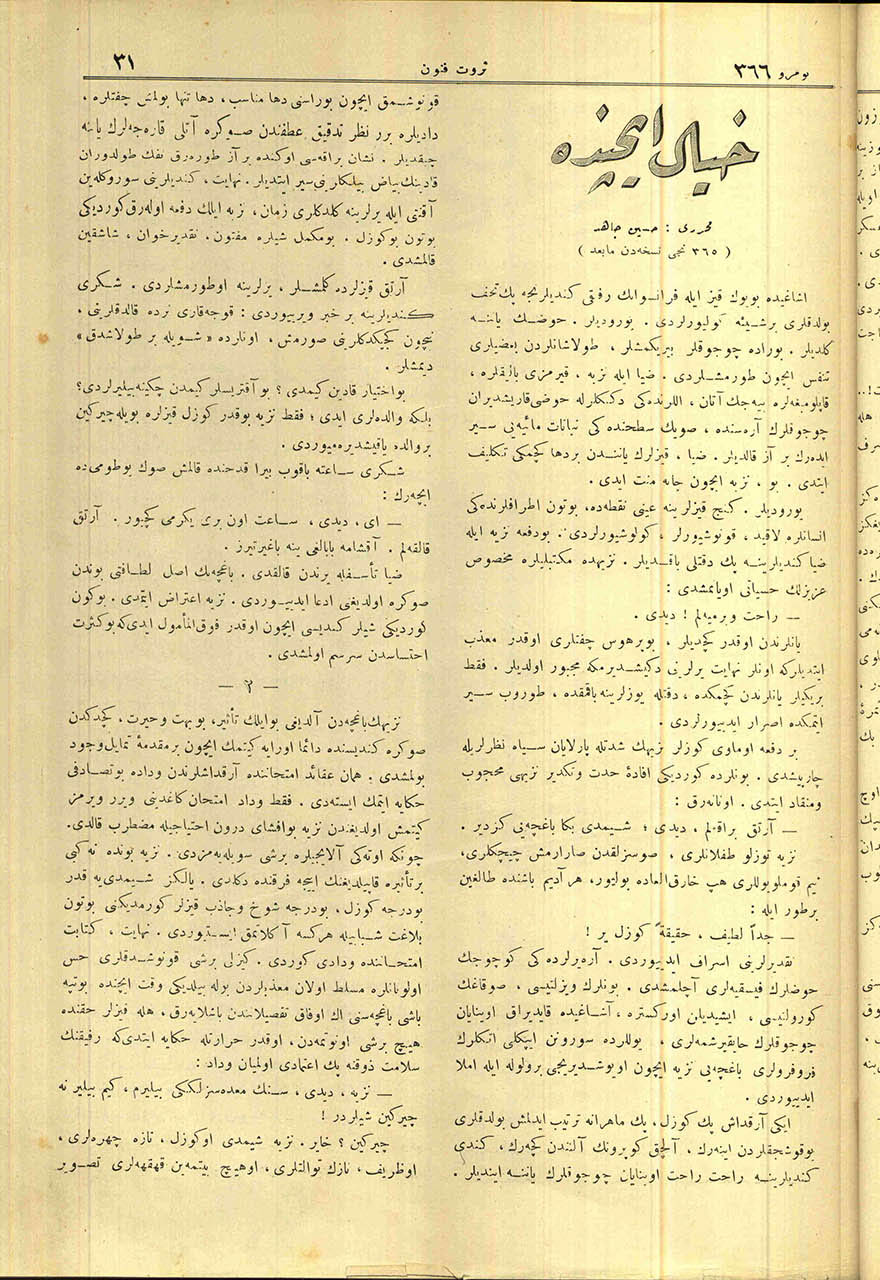 نومرو ٣٦٦
ثروت فنون
٣١
خیال ایچنده
محرری : حسین جاهد
( ٣٦٥ نجی نسخه‌دن مابعد )
اشاغیده بویوك قیز ایله فرانسوانك رفقی كندیلرنجه پك تحف
بولدقلری برشیئه كولیورلردی . یورودیلر . حوضك یاننه
كلدیلر . بوراده چوجوقلر بیریكمشلر ، طولاشانلردن بعضیلری
تنفس ایچون طورمشلردی . ضیا ایله نزیه ، قیرمزی بالیقلره ،
قاپلومبغه‌لره ییه‌جك آتان ، اللرنده‌كی دكنكلرله حوضی قاریشدیران
چوجوقلرك آره‌سنده ، صویك سطحنده كی نباتات مائیه‌یی سیر
ایده‌رك بر آز قالدیلر . ضیا ، قیزلرك یانندن بردها كچمكی تكلیف
ایتدی . بو ، نزیه ایچون جانه منت ایدی .
یورودیلر . كنج قیزلر ینه عینی نقطه‌ده، بوتون اطرافلرنده‌كی
انسانلره لاقید ، قونوشیورلر ، كولوشیورلردی . بودفعه نزیه ایله
ضیا كندیلرینه پك دقتلی باقدیلر . نزیهده مكتبلیلره مخصوص
عزیزلك حسیاتی اویانمشدی :
— راحت ویرمیه‌لم ! دیدی .
یانلرندن اوقدر كچدیلر ، بوبرهوس چفتلری اوقدر معذب
ایتدیلركه اونلر نهایت یرلرینی دكیشدیرمكه مجبور اولدیلر . فقط
بریكیلر یانلرندن كچمكده ، دقتله یوزلرینه باقمقده ، طوروب سیر
ایتمكده اصرار ایدییورلردی .
بر دفعه اوماوی كوزلر نزیهك شدتله پارلایان سیاه نظرلریله
چارپیشدی . بونلرده كوردیكی افادۀ حدت وتكدیر نزیهی محجوب
ومنقاد ایتدی . اوتانه‌رق :
— آرتق براقه‌لم ، دیدی ؛ شیمدی بكا باغچه‌یی كزدیر .
نزیه توزلو طفلانلری ، صوسزلقدن صارارمش چیچكلری،
نیم قوملو یوللری هپ خارق‌العاده بولیور، هر آدیم باشنده طالغین
برطور ایله :
— جداً لطیف ، حقیقةً كوزل یر !
تقدیرلرینی اسراف ایدییوردی . آره‌یرلرده كی كوچوجك
حوضلرك فیسقیه‌لری آچلمشدی . بونلرك ویزلتیسی ، صوقاغك
كورولتیسی ، ایشیدیلن اوركستره ، آشاغیده قایدیراق اوینایان
چوجوقلرك حایقیرشمه‌لری ، یوللرده سورونن ایپكلی اتكلرك
فروفرولری باغچه‌یی نزیه ایچون اویوشدیریجی برولوله ایله املا
ایدییوردی .
ایكی آرقداش پك كوزل، پك ماهرانه ترتیب ایدلمش بولدقلری
بوقوشجقلردن اینه‌رك ، آلچق كوپرونك آلتندن كچه‌رك ، كندی
كندیلرینه راحت راحت اوینایان چوجوقلرك یاننه ایندیلر .
قونوشمق ایچون بوراسنی دها مناسب، دها تنها بولمش چفتلره ،
دادیلره برر نظر تدقیق عطفندن صوكره آتلی قاره‌جه‌لرك یاننه
چیقدیلر . نشان براقه‌سی اوكنده برآز طوره‌رق تفنك طولدوران
قادینك بیاض بیلكلرینی سیر ایتدیلر . نهایت ، كندیلرینی سوروكله‌ین
آقنتی ایله یرلرینه كلدكلری زمان، نزیه ایلك دفعه اوله‌رق كوردیكی
بوتون بوكوزل . بومكمل شیلره مفتون . تقدیرخوان ، شاشقین
قالمشدی .
آرتق قیزلرده كلمشلر ، یرلرینه اوطورمشلردی . شكری
كندیلرینه بر خبر ویرییوردی : قوجه‌قاری نرده قالدقلرینی ،
نیچون كجیكدكلرینی صورمش ، اونلرده « شویله بر طولاشدق»
دیمشلر .
بواختیار قادین كیمدی ؟ بو آقتریسلر كیمدن چكینه‌بیلیرلردی؟
بلكه والده‌لری ایدی ؛ فقط نزیه بوقدر كوزل قیزلره بویله چیركین
بروالده یاقیشدیره‌میوردی .
شكری ساعته باقوب بیرا قدحنده قالمش صوك یودومی ده
ایچه‌رك :
— ای ، دیدی ، ساعت اون بری یكرمی كچیور . آرتق
قالقه‌لم . آقشامه بابالغی ینه باغیرتیرز .
ضیا تأسفله یرندن قالقدی . باغچه‌نك اصل لطافتی بوندن
صوكره اولدیغنی ادعا ایدییوردی . نزیه اعتراض ایتمدی . بوكون
كوردیكی شیلر كندیسی ایچون اوقدر فوق‌المأمول ایدی‌كه بوكثرت
احتساسدن سرسم اولمشدی .
— ٢ —
نزیهك باغچه‌دن آلدیغی بوایلك تأثیر، بوبهت وحیرت، كچدكدن
صوكره كندیسنده دائما اورایه كیتمك ایچون برمقدمۀ تمایل وجود
بولمشدی . همان عقائد امتحاننده آرقداشلرندن وداده بوتصادفی
حكایه ایتمك ایسته‌دی . فقط وداد امتحان كاغدینی ویرر ویرمز
كیتمش اولدیغندن نزیه بوافشای درون احتیاجیله مضطرب قالدی.
چونكه اوته‌كی آلایجیلره برشی سویله‌یه‌مزدی . نزیه بونده نه‌كی
برتأثیره قاپیلدیغنك اییجه فرقنده دكلدی . یالكز شیمدی‌یه قدر
بودرجه كوزل ، بودرجه شوخ وجاذب قیزلر كورمدیكنی بوتون
بلاغت شبابیله هركسه آكلاتمق ایستیوردی . نهایت ، كتابت
امتحاننده ودادی كوردی . كیزلی برشی قونوشدقلری حس
اولونانلره مسلط اولان معذبلردن بوله بیلدیكی وقت ایچنده بوتپه
باشی باغچه‌سنی اك اوفاق تفصیلاتندن باشلایه‌رق ، هله قیزلر حقنده
هیچ برشی اونوتمه‌دن، اوقدر حرارتله حكایه ایتدی‌كه رفیقنك
سلامت ذوقنه پك اعتمادی اولمیان وداد :
— نزیه ، دیدی ، سنك معده‌سزلككی بیلیرم ، كیم بیلیر نه
چیركین شیلردر !
چیركین ؟ خایر . نزیه شیمدی اوكوزل ، تازه چهره‌لری ،
اوظریف ، نازك توالتلری، اوهیچ بیتمه‌ین قهقهه‌لری تصویر